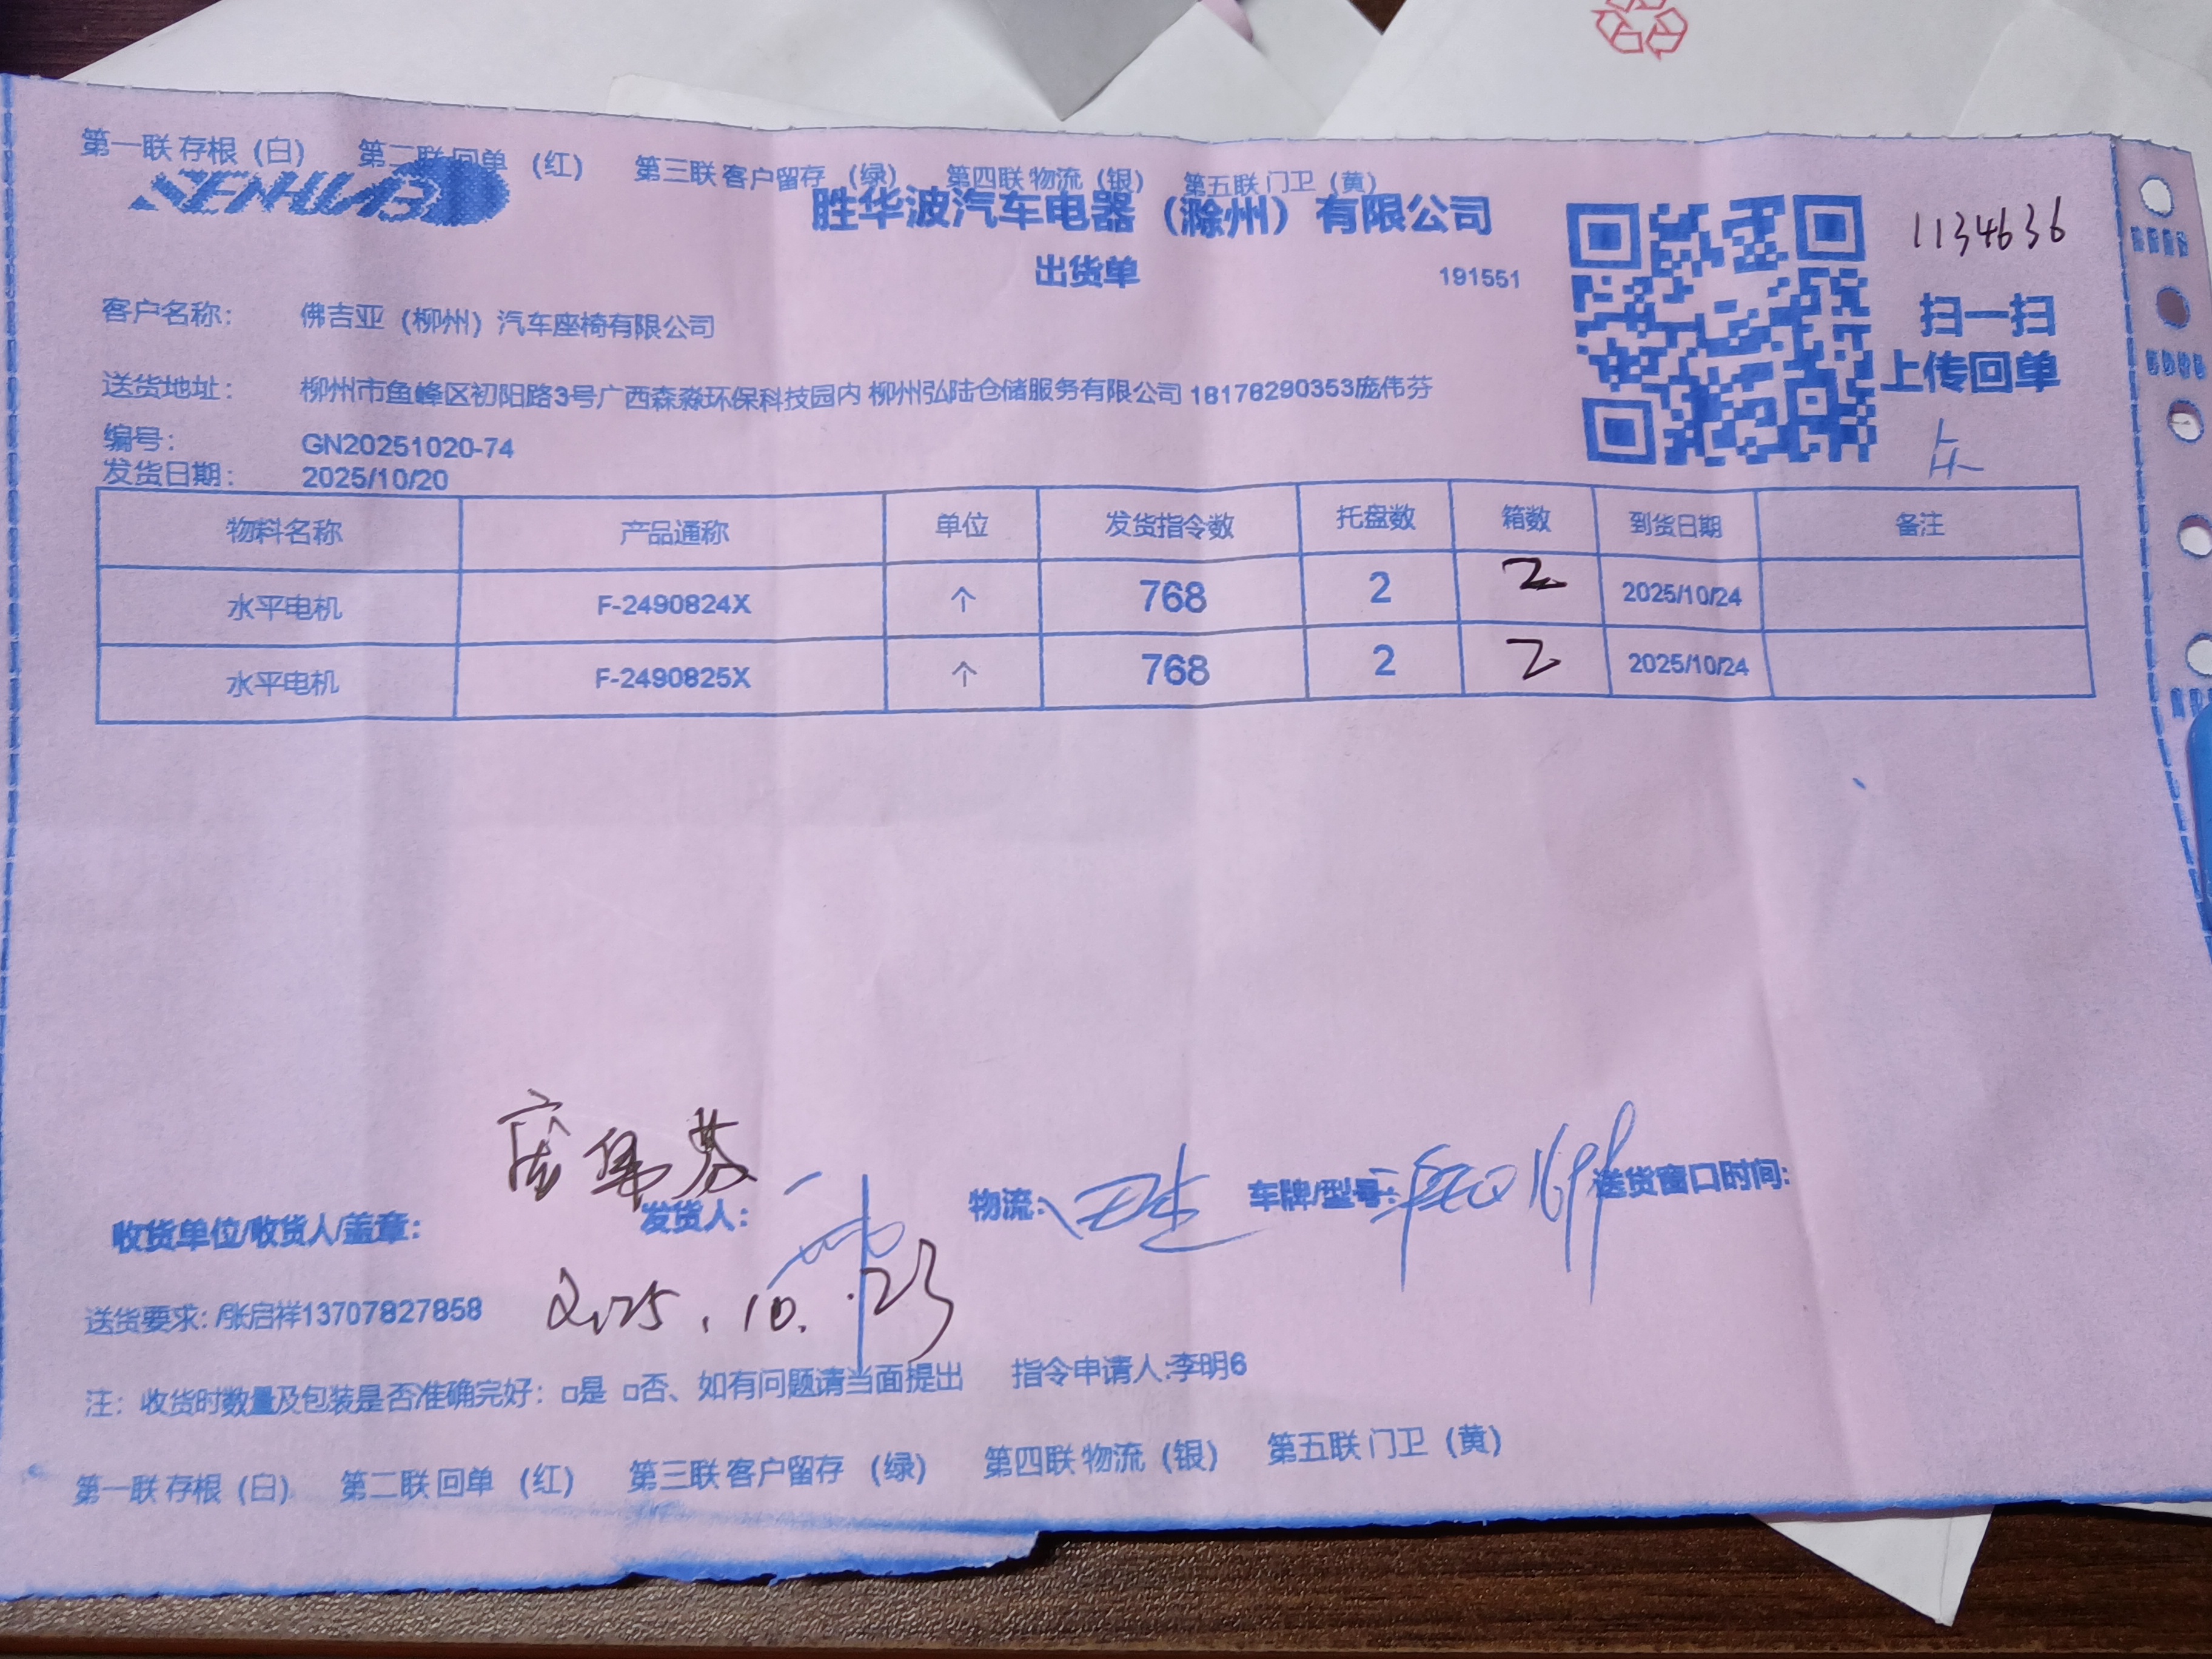 第一联 存根（白） 第二联 回单 （红） 第三联 客户留存 （绿） 第四联 物流（银） 第五联 门卫（黄）
胜华波汽车电器（滁州）有限公司
1134636
出货单
191551
扫一扫
上传回单
客户名称： 佛吉亚（柳州）汽车座椅有限公司
送货地址： 柳州市鱼峰区初阳路3号广西森淼环保科技园内 柳州弘陆仓储服务有限公司 18178290353庞伟芬
编号： GN20251020-74
发货日期： 2025/10/20
物料名称 产品通称 单位 发货指令数 托盘数 箱数 到货日期 备注
水平电机 F-2490824X 个 768 2 2 2025/10/24
水平电机 F-2490825X 个 768 2 2 2025/10/24
庞伟芬
收货单位/收货人/盖章： 发货人： 物流： 车牌/型号： 送货窗口时间：
送货要求：/张启祥13707827858 2025.10.23
注：收货时数量及包装是否准确完好：□是 □否、如有问题请当面提出 指令申请人:李明6
第一联 存根（白） 第二联 回单 （红） 第三联 客户留存 （绿） 第四联 物流（银） 第五联 门卫（黄）